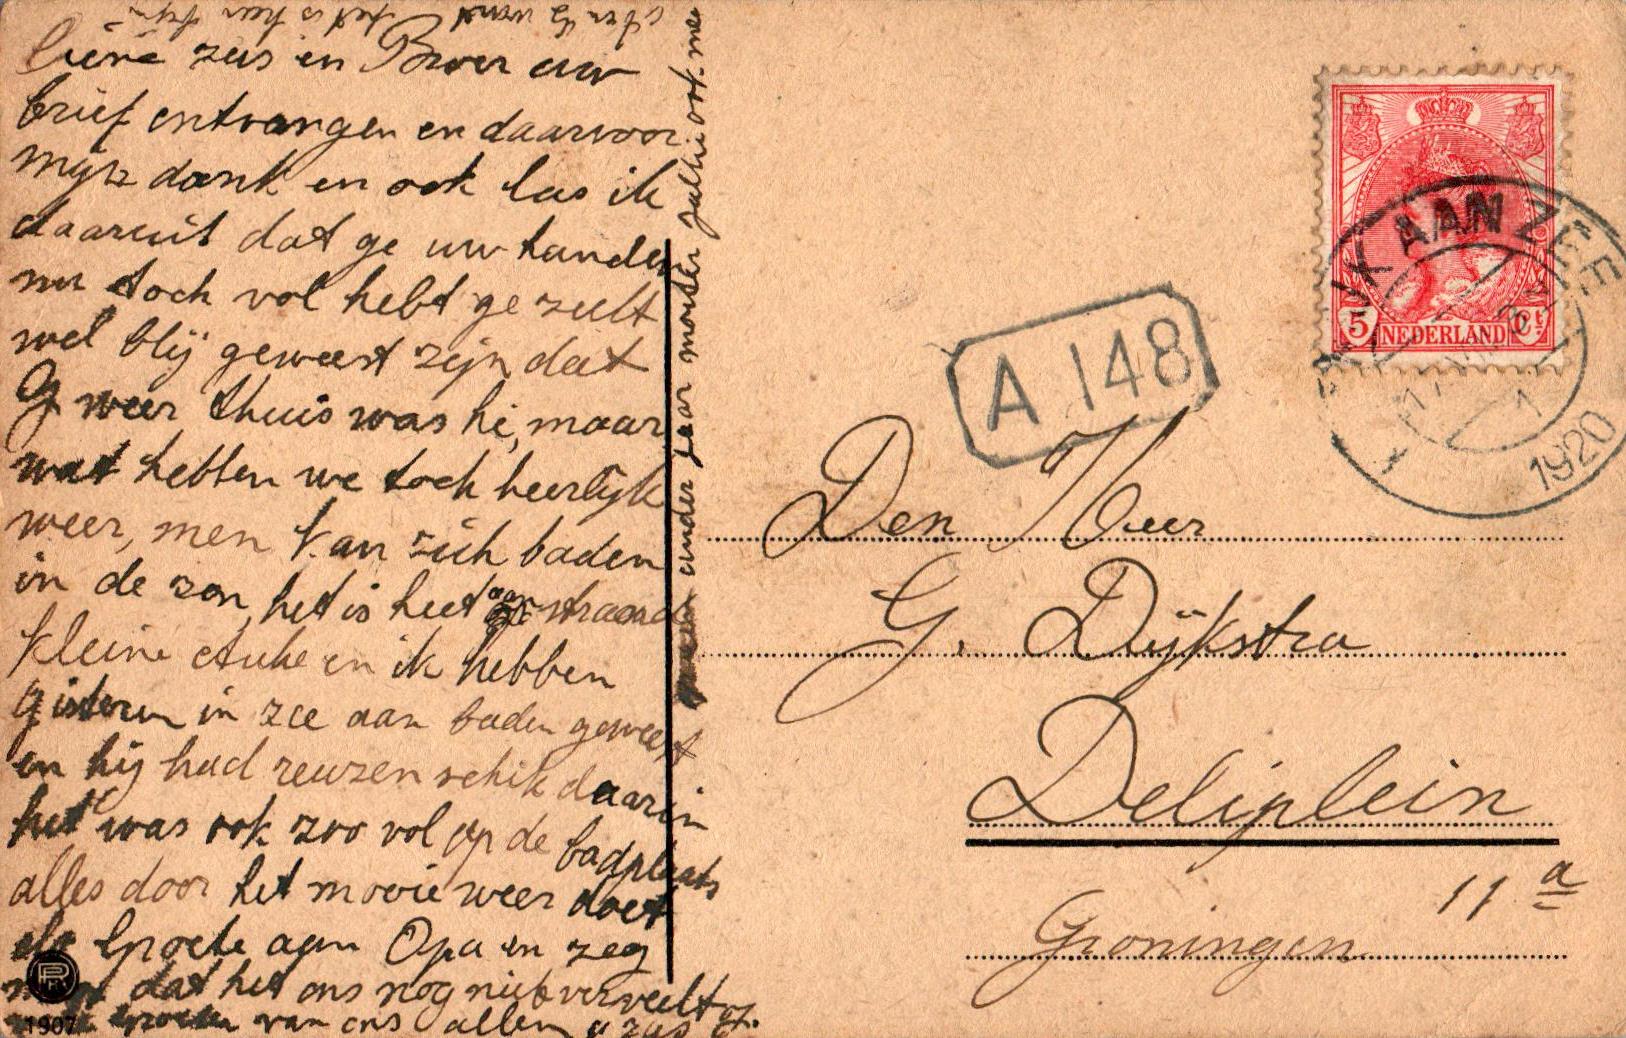 lieve zus en Broer uw
brief ontvangen en daarvoor
mijn dank en ook las ik
daaruit dat ge uw handen
nu toch vol hebt ge zult
wel blij geweest zijn dat
G weer thuis was hé, maar
wat hebben we toch heerlijk
weer, men kan zich baden
in de zon, het is heet aan strand
kleine Auke en ik hebben
gisteren in zee aan baden geweest
en hij had reuzen schik daarin
het was ook zoo vol op de badplaats
alles door het mooie weer doet
de Groete aan Opa en zeg
maar dat het ons nog niet verveelt
van ons allen
jullie ook mee
NEDERLAND
5 Ct
WIJK AAN ZEE
1920
A 148
Den Heer
G. Dijkstra
Deliplein
11 a
Groningen
PR
1907